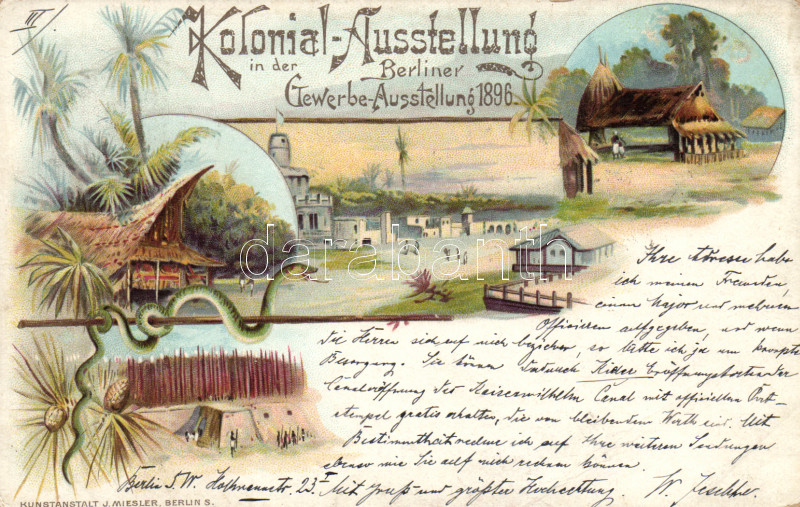 III
Kolonial-Ausstellung
in der Berliner
Gewerbe-Ausstellung 1896.
darabanth.com
Ihre Adresse habe
ich meinen Freunden,
einem Major und mehreren
Offizieren aufgegeben, und wenn
die Herren sich auf mich beziehen, so bitte ich ja um prompte
Besorgung. Sie können dadurch Kieler Eröffnungskarten der
Canaleröffnung des Kaiser Wilhelm Canal mit offiziellen Post-
stempel gratis erhalten, die von bleibendem Werth sind. Mit
Bestimmtheit rechne ich auf Ihre weiteren Sendungen
ebenso wie Sie auf mich rechnen können.
Berlin S.W. 23
Mit Gruß und größter Hochachtung. W.
KUNSTANSTALT J. MIESLER, BERLIN S.